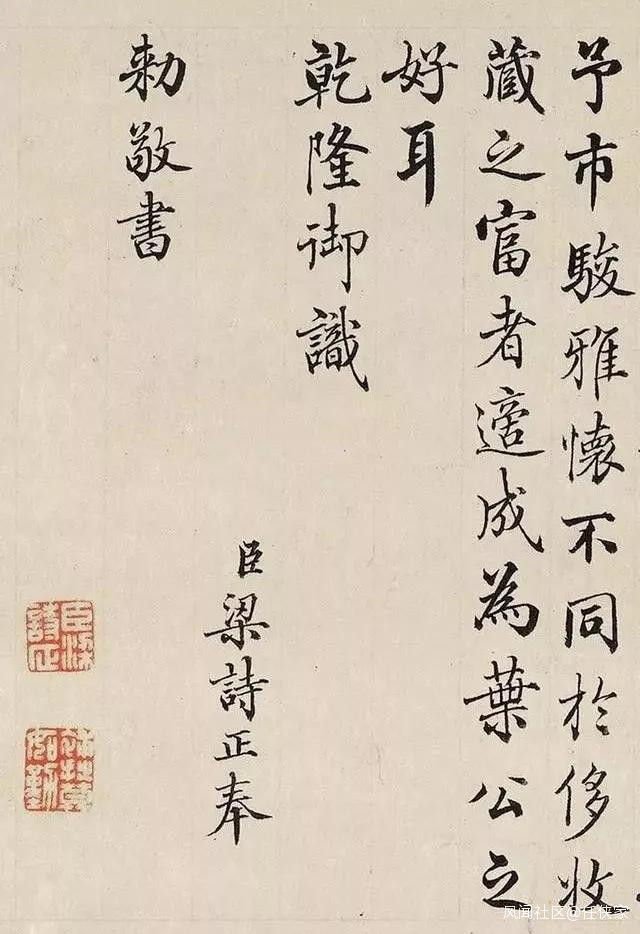 予市駿雅懷不同於侈收
藏之富者適成為葉公之
好耳
乾隆御識
臣梁詩正奉
勅敬書
臣梁詩正
風闻社区@任侠家